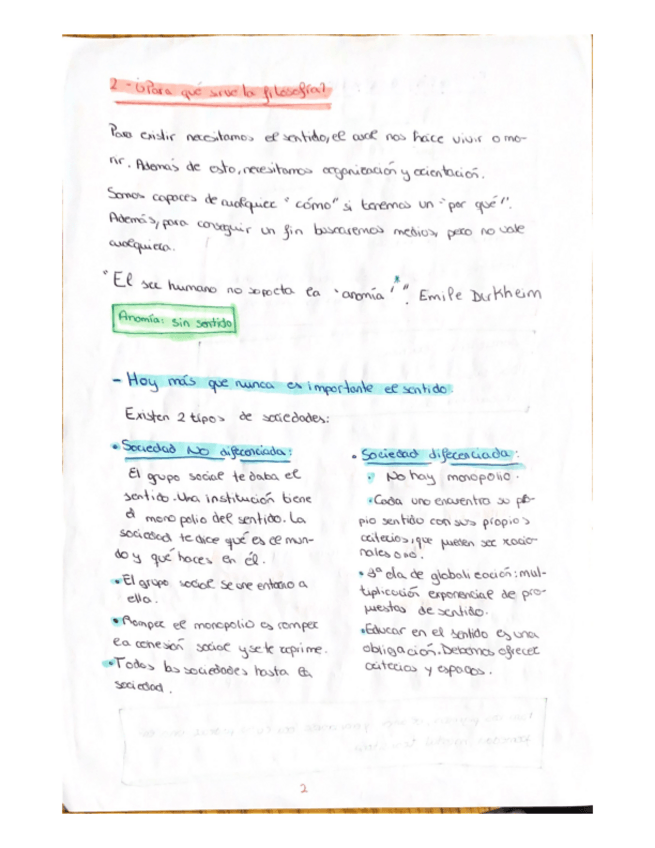 2 - ¿Para qué sirve la filosofía?
Para existir necesitamos el sentido, el cual nos hace vivir o mo-
rir. Además de esto, necesitamos organización y orientación.
Somos capaces de cualquier "cómo" si tenemos un "por qué".
Además, para conseguir un fin buscaremos medios, pero no vale
cualquiera.
"El ser humano no soporta la 'anomía'*". Emile Durkheim
Anomía: sin sentido
- Hoy más que nunca es importante el sentido.
Existen 2 tipos de sociedades:
• Sociedad NO diferenciada:
El grupo social te daba el
sentido. Una institución tiene
el monopolio del sentido. La
sociedad te dice qué es el mun-
do y qué haces en él.
• El grupo social se une entorno a
ella.
• Romper el monopolio es romper
la conexión social y se te reprime.
• Todas las sociedades hasta la
sociedad.
• Sociedad diferenciada:
• No hay monopolio.
• Cada uno encuentra su pro-
pio sentido con sus propios
criterios, que pueden ser racio-
nales o no.
• 3ª ola de globalización: mul-
tiplicación exponencial de pro-
puestas de sentido.
• Educar en el sentido es una
obligación. Debemos ofrecer
criterios y espacios.
2